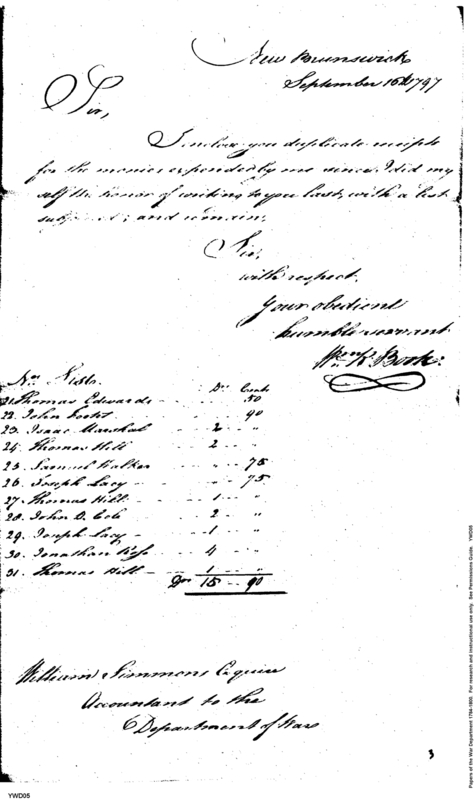 New Brunswick
September 16th 1797
Sir,
I inclose you duplicate receipts
for the monies expended by me since I did my
self the honor of writing to you last, with a list
subjoined; and remain,
Sir,
with respect,
Your obedient
humble servant
Book:
No. List. Drs Cents
21. Thomas Edwards 50
22. John 90
23. Isaac Marshal 2 "
24. Thomas Hill 2 "
25. Samuel Walker 75
26. Joseph Lacy 75
27. Thomas Hill 1 "
28. John D. Cole 2 "
29. Joseph Lacy 1 "
30. Jonathan Ross 4 "
31. Thomas Hill 1 "
Drs 15 90
William Simmons Esquire
Accountant to the
Department of War
3
YWD05
Papers of the War Department 1784-1800. For research and instructional use only. See Permissions Guide. YWD05